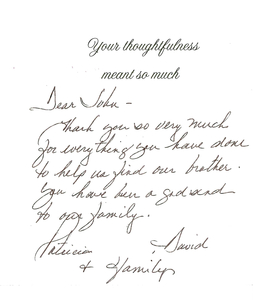 Your thoughtfulness
meant so much
Dear John -
Thank you so very much
for everything you have done
to help us find our brother.
You have been a godsend
to our family.
Patricia & David
& Family